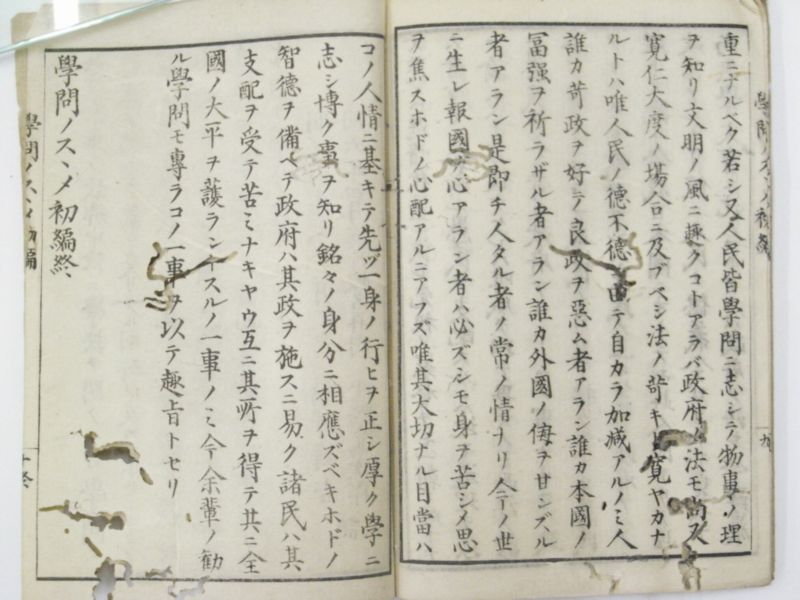 學問ノスヽメ初編
九
重ニナルベク若シ又人民皆學問ニ志シテ物事ノ理
ヲ知リ文明ノ風ニ趣クコトアラバ政府ノ法モ尚又
寛仁大度ノ場合ニ及ブベシ法ノ苛キト寛ヤカナ
ルトハ唯人民ノ德不德ニ由テ自カラ加減アルノミ人
誰カ苛政ヲ好テ良政ヲ惡ム者アラン誰カ本國ノ
冨强ヲ祈ラザル者アラン誰カ外國ノ侮ヲ甘ンズル
者アラン是即チ人タル者ノ常ノ情ナリ今ノ世
ニ生レ報國ノ心アラン者ハ必ズシモ身ヲ苦シメ思
ヲ焦スホドノ心配アルニアラズ唯其大切ナル目當ハ
コノ人情ニ基キテ先ヅ一身ノ行ヒヲ正シ厚ク學ニ
志シ博ク事ヲ知リ銘々ノ身分ニ相應ズベキホドノ
智德ヲ備ヘテ政府ハ其政ヲ施スニ易ク諸民ハ其
支配ヲ受テ苦ミナキヤウ互ニ其所ヲ得テ共ニ全
國ノ大平ヲ護ラントスルノ一事ノミ今余輩ノ勸
ル學問モ專ラコノ一事ヲ以テ趣旨トセリ
學問ノスヽメ初編終
學問ノスヽメ初編
十終